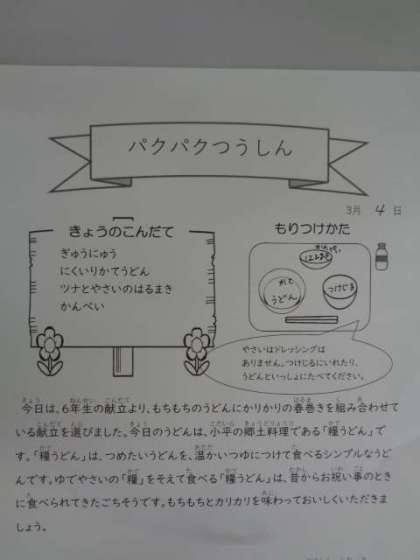 パクパクつうしん
3月 4日
きょうのこんだて
ぎゅうにゅう
にくいりかてうどん
ツナとやさいのはるまき
かんぺい
もりつけかた
かんぺい
はるまき
かて
うどん
つけじる
やさいはドレッシングは
ありません。つけじるにいれたり、
うどんといっしょにたべてください。
今日は、6年生の献立より、もちもちのうどんにかりかりの春巻きを組み合わせて
いる献立を選びました。今日のうどんは、小平の郷土料理である「糧うどん」で
す。「糧うどん」は、つめたいうどんを、温かいつゆにつけて食べるシンプルなうど
んです。ゆでやさいの「糧」をそえて食べる「糧うどん」は、昔からお祝い事のとき
に食べられてきたごちそうです。もちもちとカリカリを味わっておいしくいただきま
しょう。